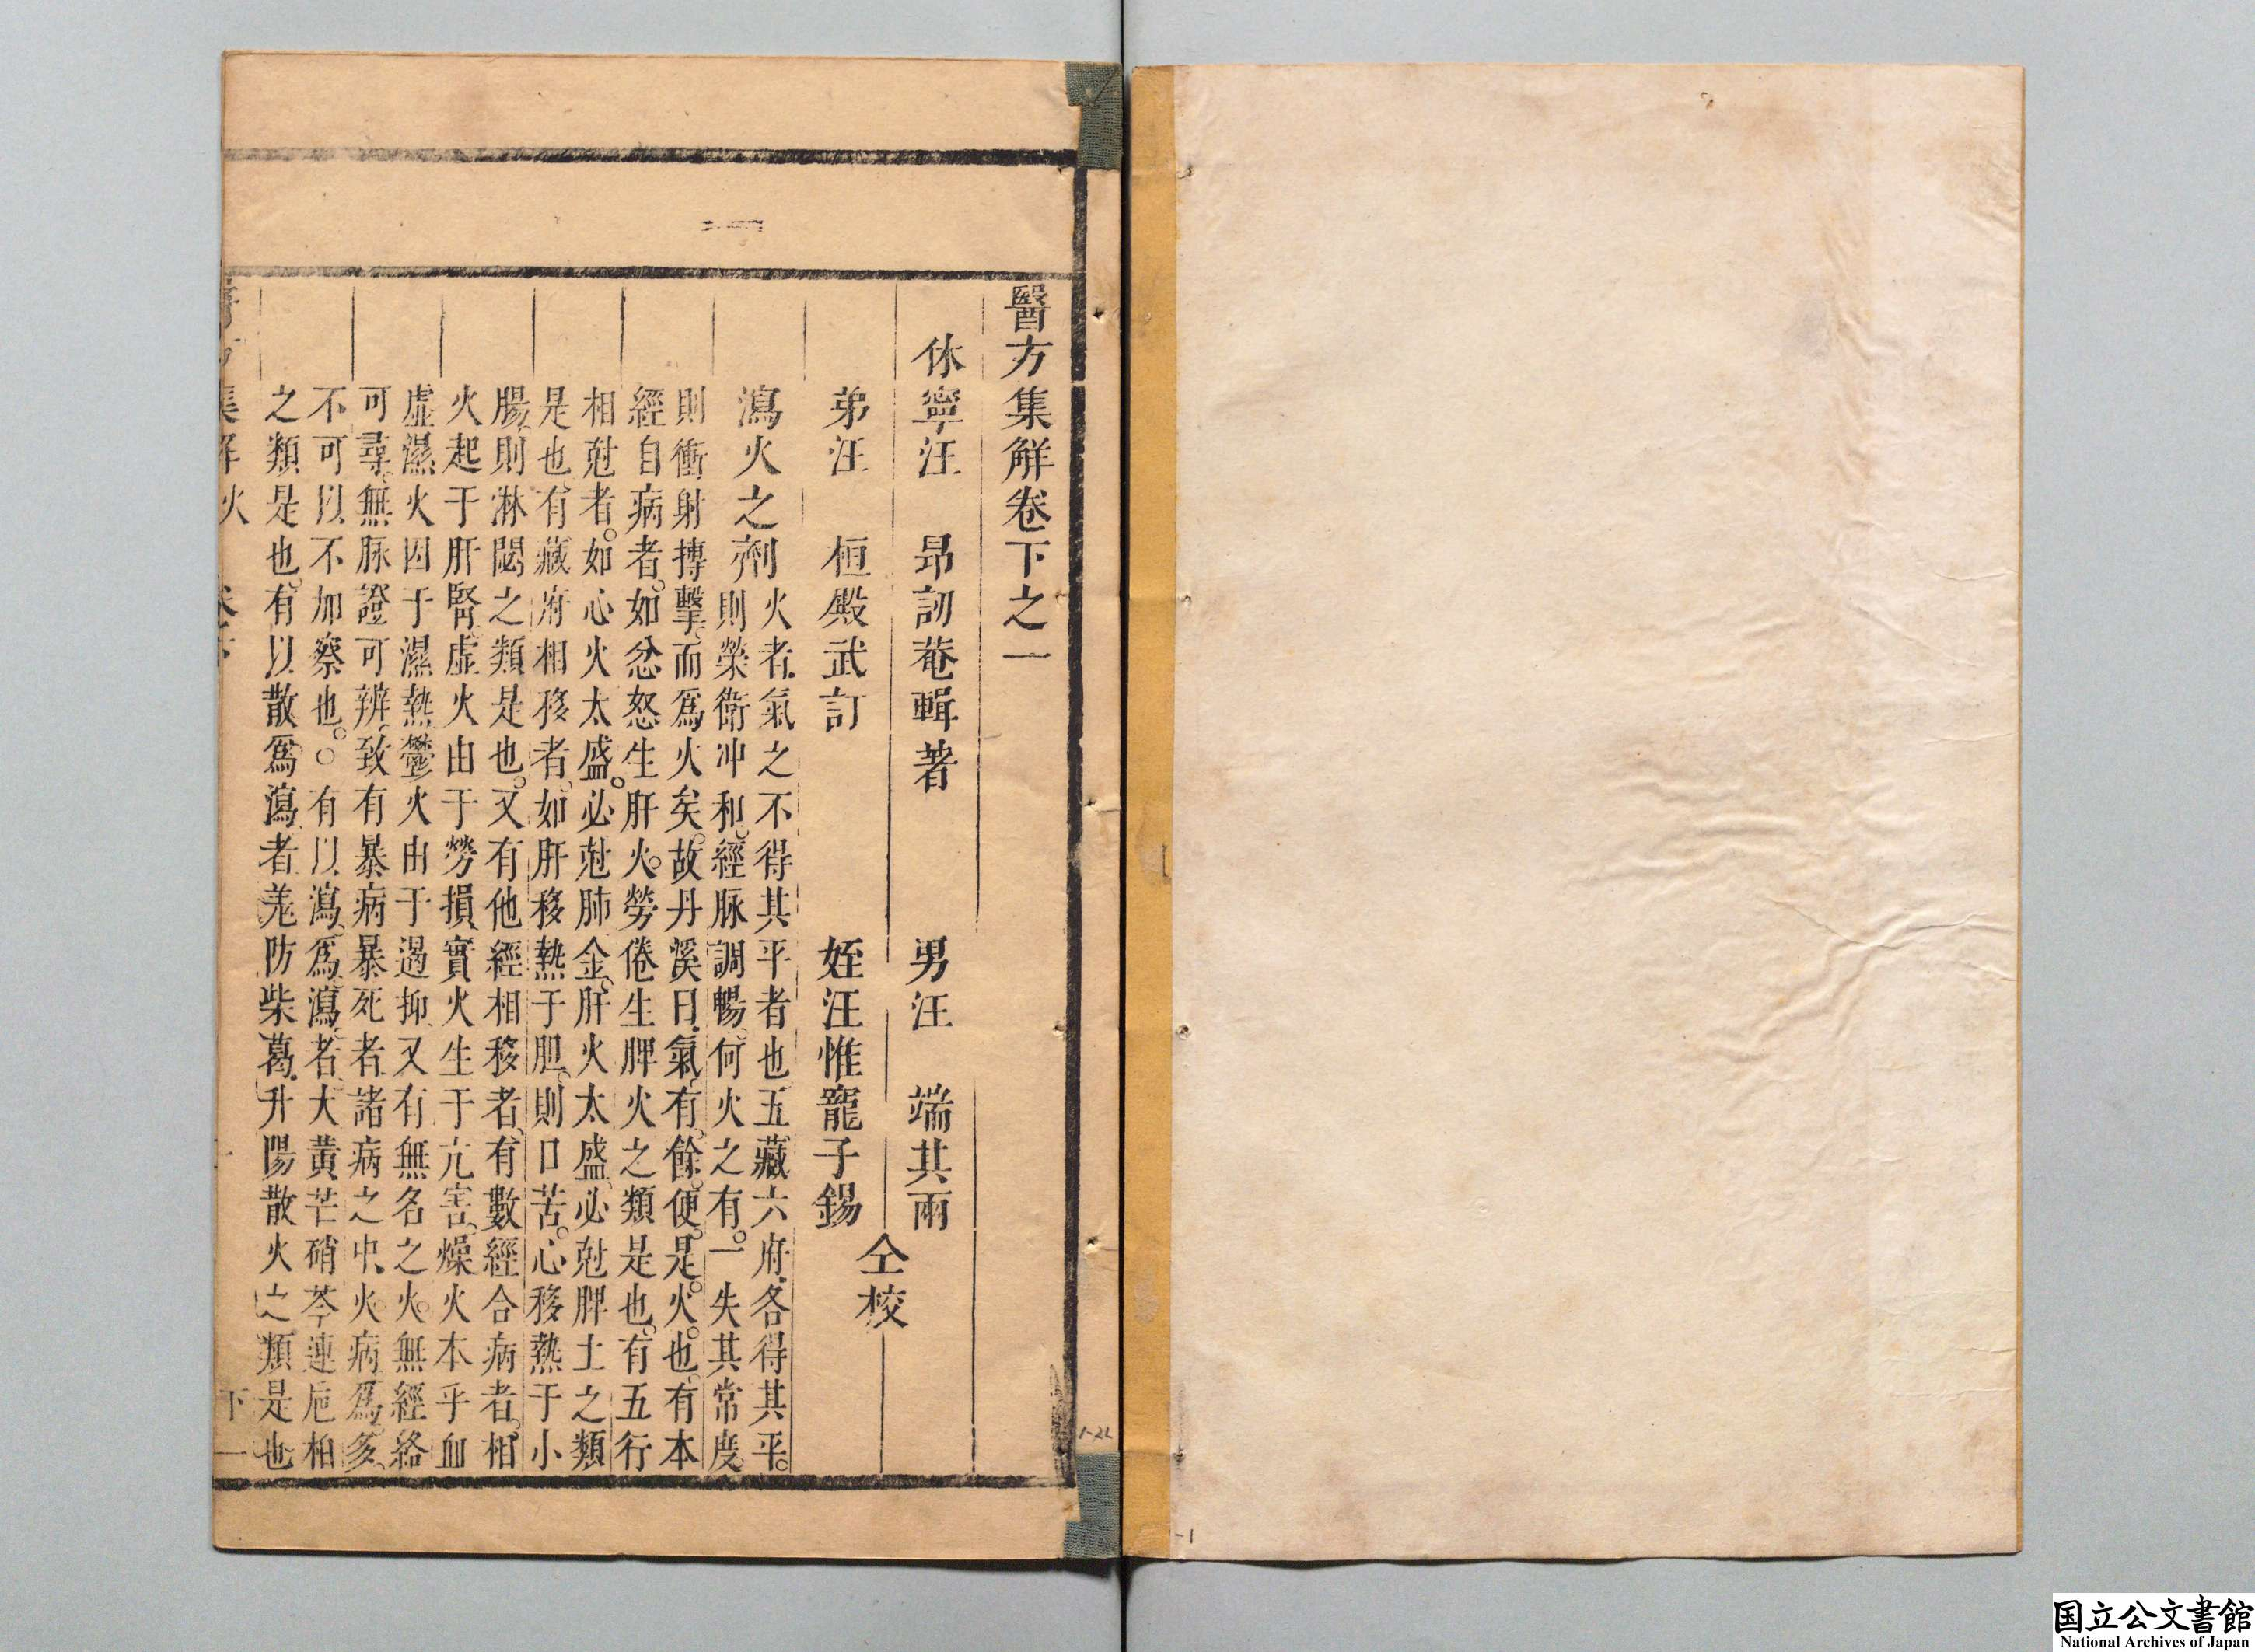 醫方集解卷下之一
休寧汪　昂訒菴輯著　男汪　端其兩
弟汪　桓殿武訂　姪汪惟寵子錫
仝校
瀉火之劑
火者氣之不得其平者也五藏六府各得其平。
則榮衛冲和。經脉調暢。何火之有。一失其常度。
則衝射搏擊。而爲火矣。故丹溪曰。氣有餘便是火也。有本
經自病者。如忿怒生肝火。勞倦生脾火之類是也。有五行
相尅者。如心火太盛。必尅肺金。肝火太盛。必尅脾土之類
是也。有藏府相移者。如肝移熱于胆。則口苦。心移熱于小
腸。則淋閟之類是也。又有他經相移者。有數經合病者。相
火起于肝腎。虛火由于勞損。實火生于亢害。燥火本乎血
虛。濕火因于濕熱。鬱火由于遏抑。又有無名之火。無經絡
可尋。無脉證可辨。致有暴病暴死者。諸病之中。火病爲多。
不可以不加察也。○有以瀉爲瀉者。大黄芒硝芩連巵柏
之類是也。有以散爲瀉者。羗防柴葛。升陽散火之類是也
集解 火
下 一
1-22
-1
国立公文書館
National Archives of Japan